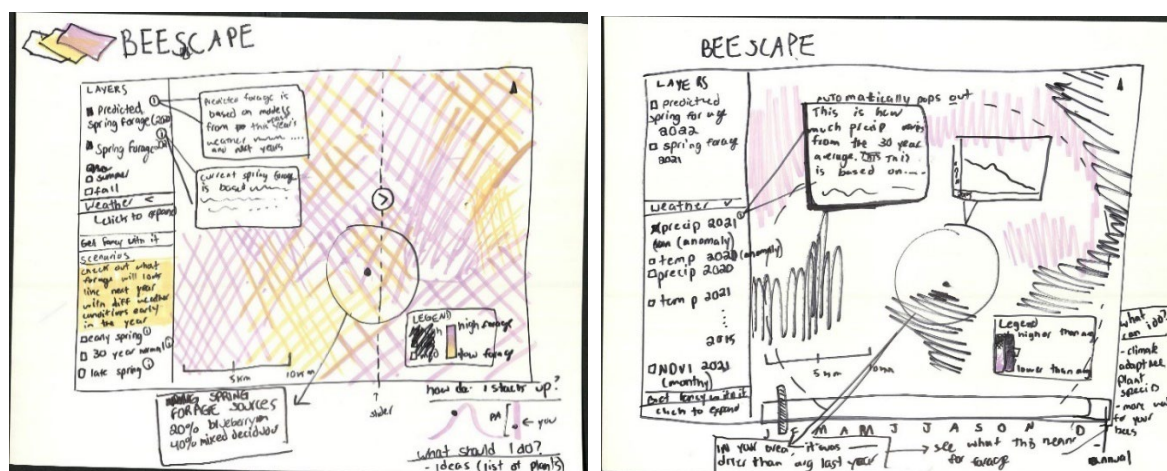 BEESCAPE
LAYERS
Predicted
Spring forage (2022
Spring forage
summer
fall
Weather <
click to expand
Get fancy with it
Scenarios
check out what
forage will look
like next year
with diff weather
conditions early
in the year
early spring
30 year normal
late spring
Predicted forage is
based on models
from this year's
weather
and next years
current spring forage
is based
LEGEND
high forage
low forage
5 km
10 km
slider
SPRING
FORAGE SOURCES
20% blueberry
40% mixed deciduous
how do I stack up?
PA
you
what should I do?
- ideas (list of plants)
BEESCAPE
LAYERS
predicted
spring forage
2022
spring forage
2021
Weather
precip 2021
(anomaly)
temp 2020 (anomaly)
precip 2020
temp 2021
2015
NDVI 2021
(monthly)
Get fancy with it
click to expand
AUTOMATICALLY pops out
This is how
much precip varies
from the 30 year
average. This
is based on....
Legend
higher than avg
lower than avg
5 km
10km
J F M A M J J A S O N D
annual
In your area, it was
drier than avg last year
see what this means
for forage
what
can I do?
- climate
adaptive
plant
species
- more
for your
bees